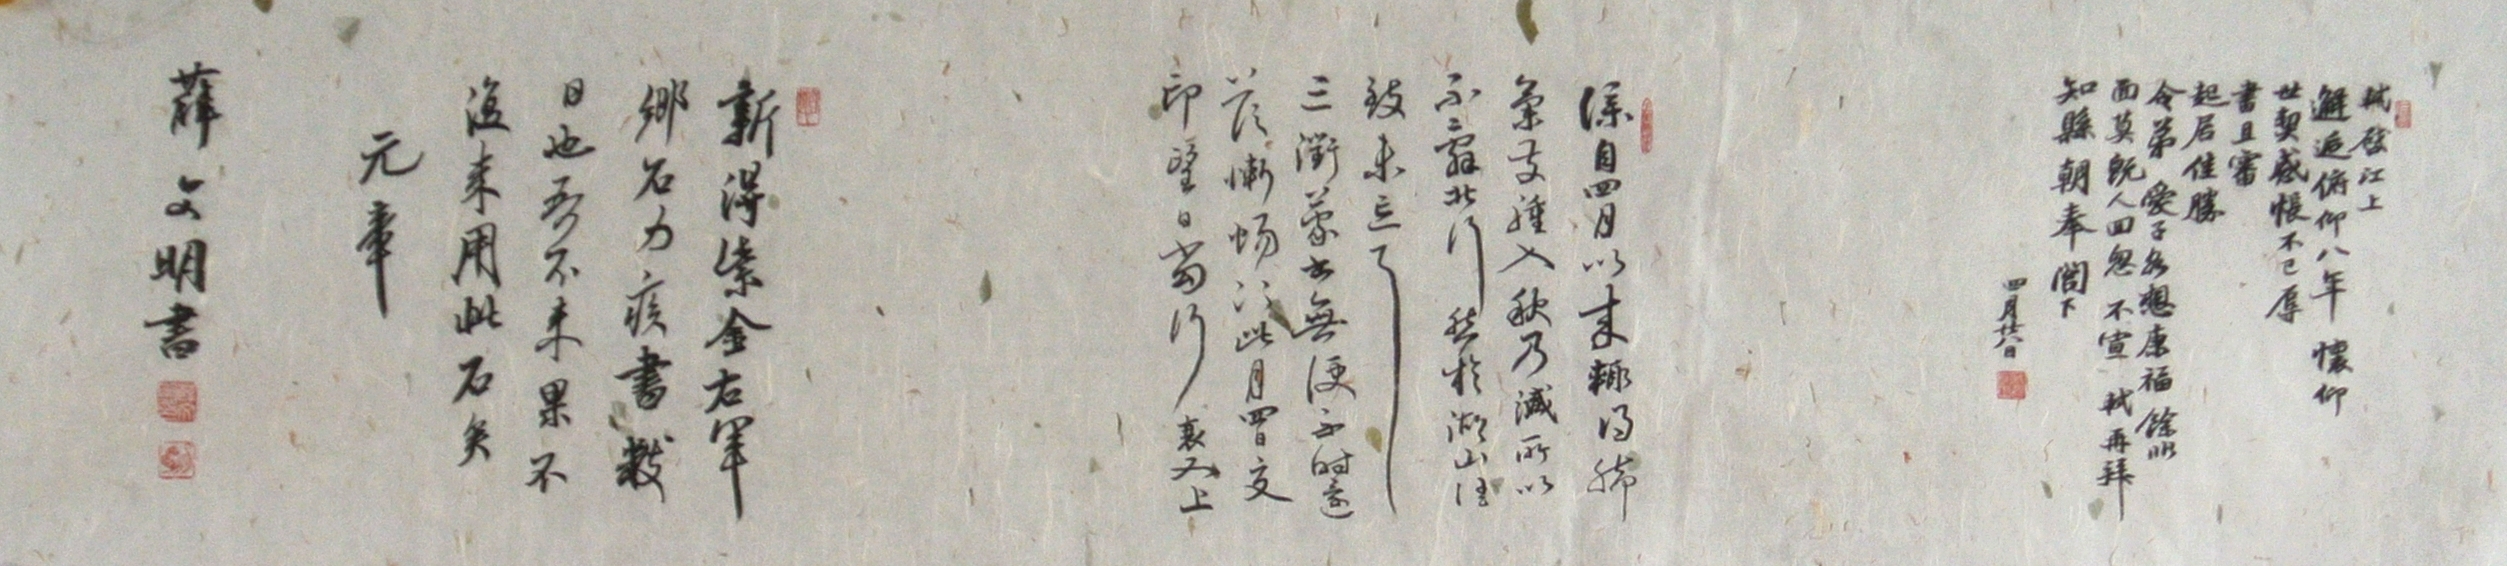 軾啓江上
邂逅俯仰八年懷仰
世契感悵不已辱
書且審
起居佳勝
令弟愛子各想康福餘非
面莫既人回怱怱不宣軾再拜
知縣朝奉閣下
四月廿八日
襄自四月以來輒得腳
氣發腫入秋乃減所以
不辭北行然於湖山佳
致未忘耳
三衢蒙書無便不時還
答慚惕慚惕此月四日交
印望日當行襄又上
新得紫金右軍
鄉石力疾書數
日也吾不來果不
復來用此石矣
元章
薛文明書